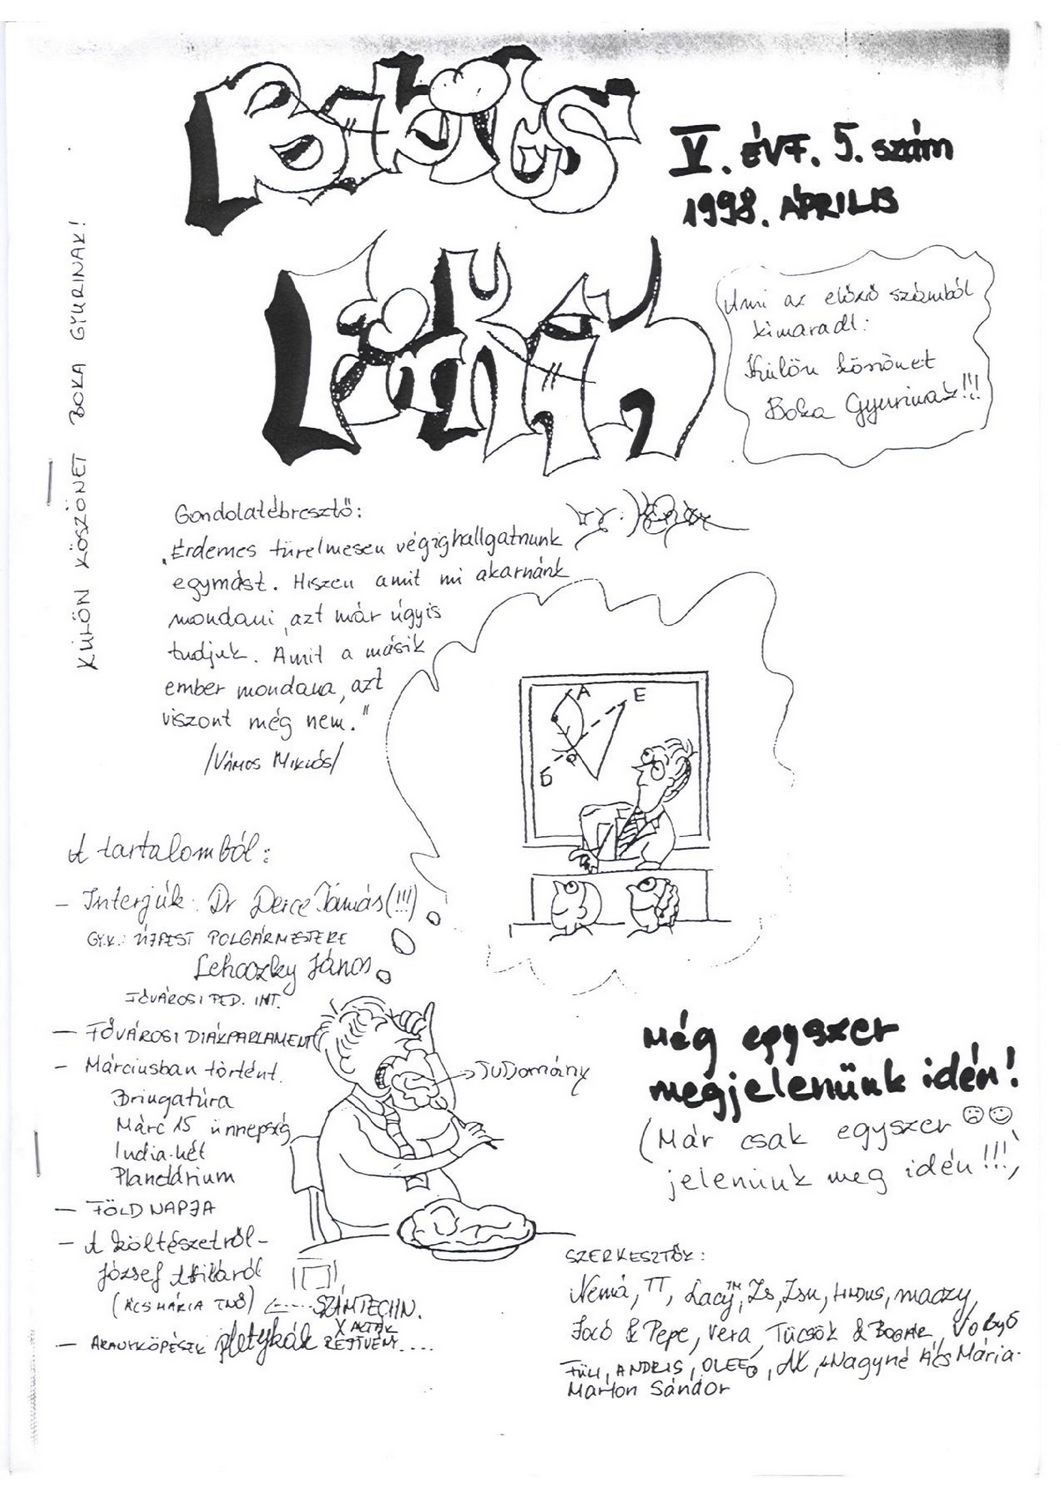 Babits
Fiókák
V. ÉVF. 5. szám
1998. ÁPRILIS
Ami az előző számból
kimaradt:
Külön köszönet
Boka Gyurinak!!!
KÜLÖN KÖSZÖNET BOKA GYURINAK!
Gondolatébresztő:
„Érdemes türelmesen végighallgatnunk
egymást. Hiszen amit mi akarnánk
mondani, azt már úgyis
tudjuk. Amit a másik
ember mondana, azt
viszont még nem."
/Vámos Miklós/
A
E
B
A tartalomból:
- Interjúk: Dr Derce Tamás (!!!)
ÚJPEST POLGÁRMESTERE
Lehoczky János
FŐVÁROSI PED. INT.
- FŐVÁROSI DIÁKPARLAMENT
- Márciusban történt.
Bringatúra
Márc 15 ünnepség
India-hét
Planetárium
- FÖLD NAPJA
- A költészetről-
József Attiláról
(ÁCS MÁRIA TNŐ) <---- SZÁMTECHN.
- ARANYKÖPÉSEK pletykák X AKTÁK REJTVÉNY....
TUDomány
Még egyszer
megjelenünk idén!
(Már csak egyszer ☹☺
jelenünk meg idén!!!)
SZERKESZTŐK:
Nemá, TT, Lacy™, Zs, Zsu, HNDUS, maczy,
Jocó & Pepe, Vera, Tücsök & Bogár,
Füli, ANDRIS, OLEEO, AK, Nagyné Ács Mária.
Marton Sándor